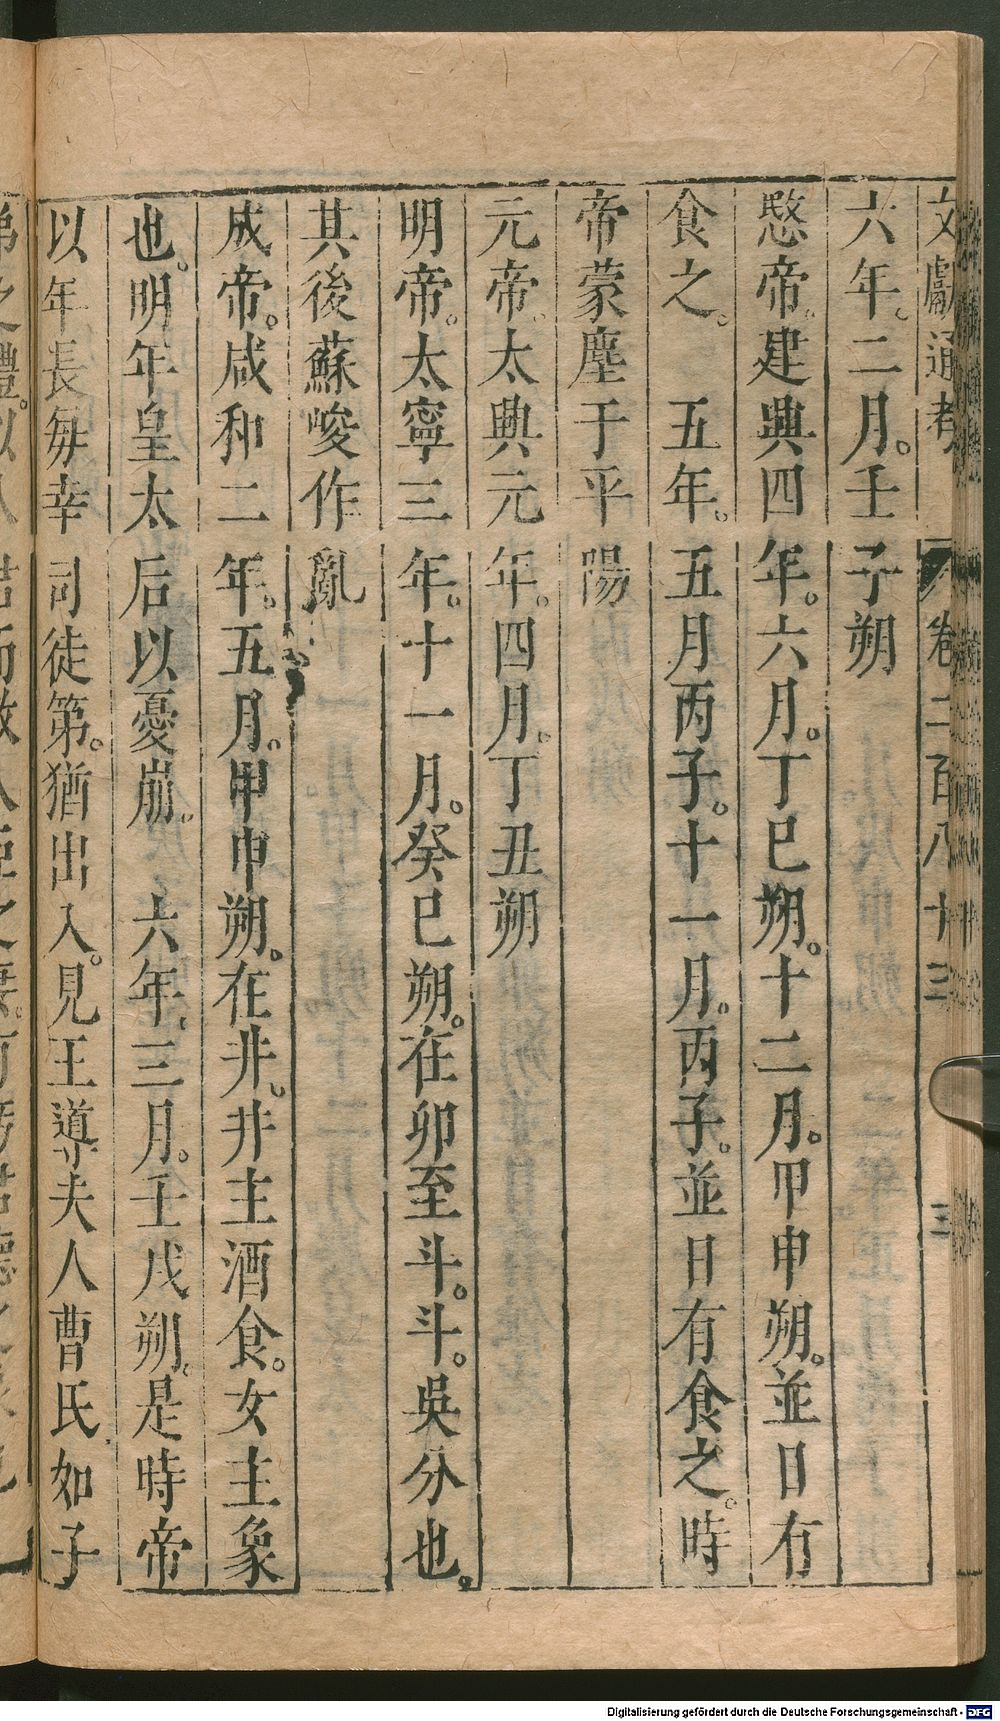 文獻通考 卷二百八十三 三
六年。二月。壬子朔
愍帝。建興四年。六月。丁巳朔。十二月。甲申朔。並日有
食之。 五年。五月丙子。十一月。丙子。並日有食之。時
帝蒙塵于平陽
元帝。太興元年。四月。丁丑朔
明帝。太寧三年。十一月。癸巳朔。在卯至斗。斗。吳分也。
其後蘇峻作亂
成帝。咸和二年。五月。甲申朔。在井。井主酒食。女主象
也。明年皇太后以憂崩。 六年。三月。壬戌朔。是時帝
以年長每幸司徒第。猶出入。見王導夫人曹氏如子
Digitalisierung gefördert durch die Deutsche Forschungsgemeinschaft - DFG